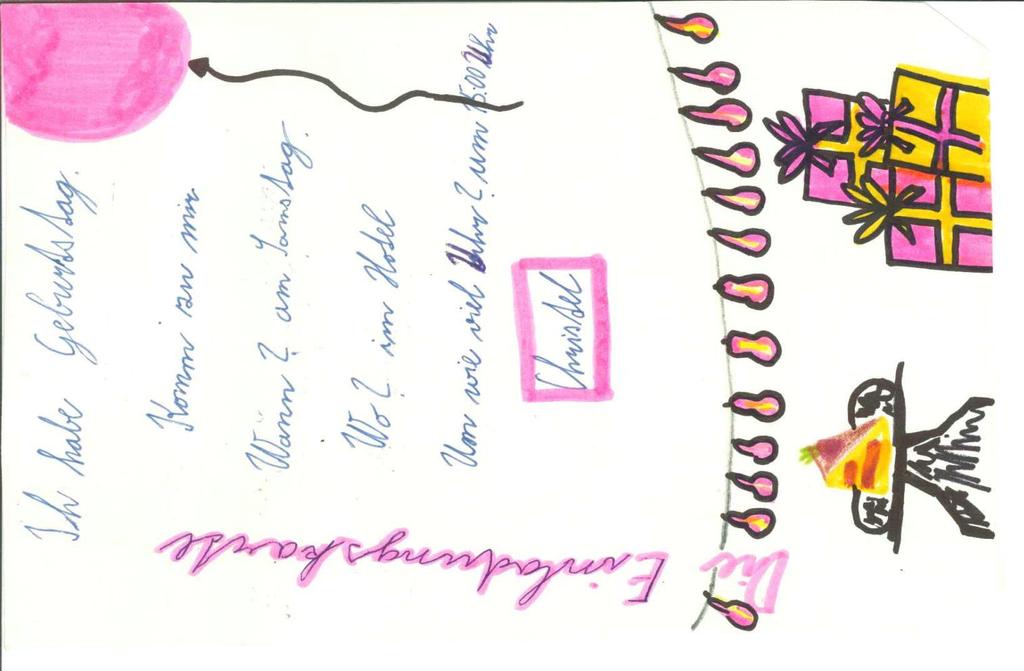 Die
Einladungskarte
Ich habe Geburtstag.
Komm zu mir
Wann? am Samstag.
Wo? im Hotel
Um wie viel Uhr? um 15.00 Uhr
Christel